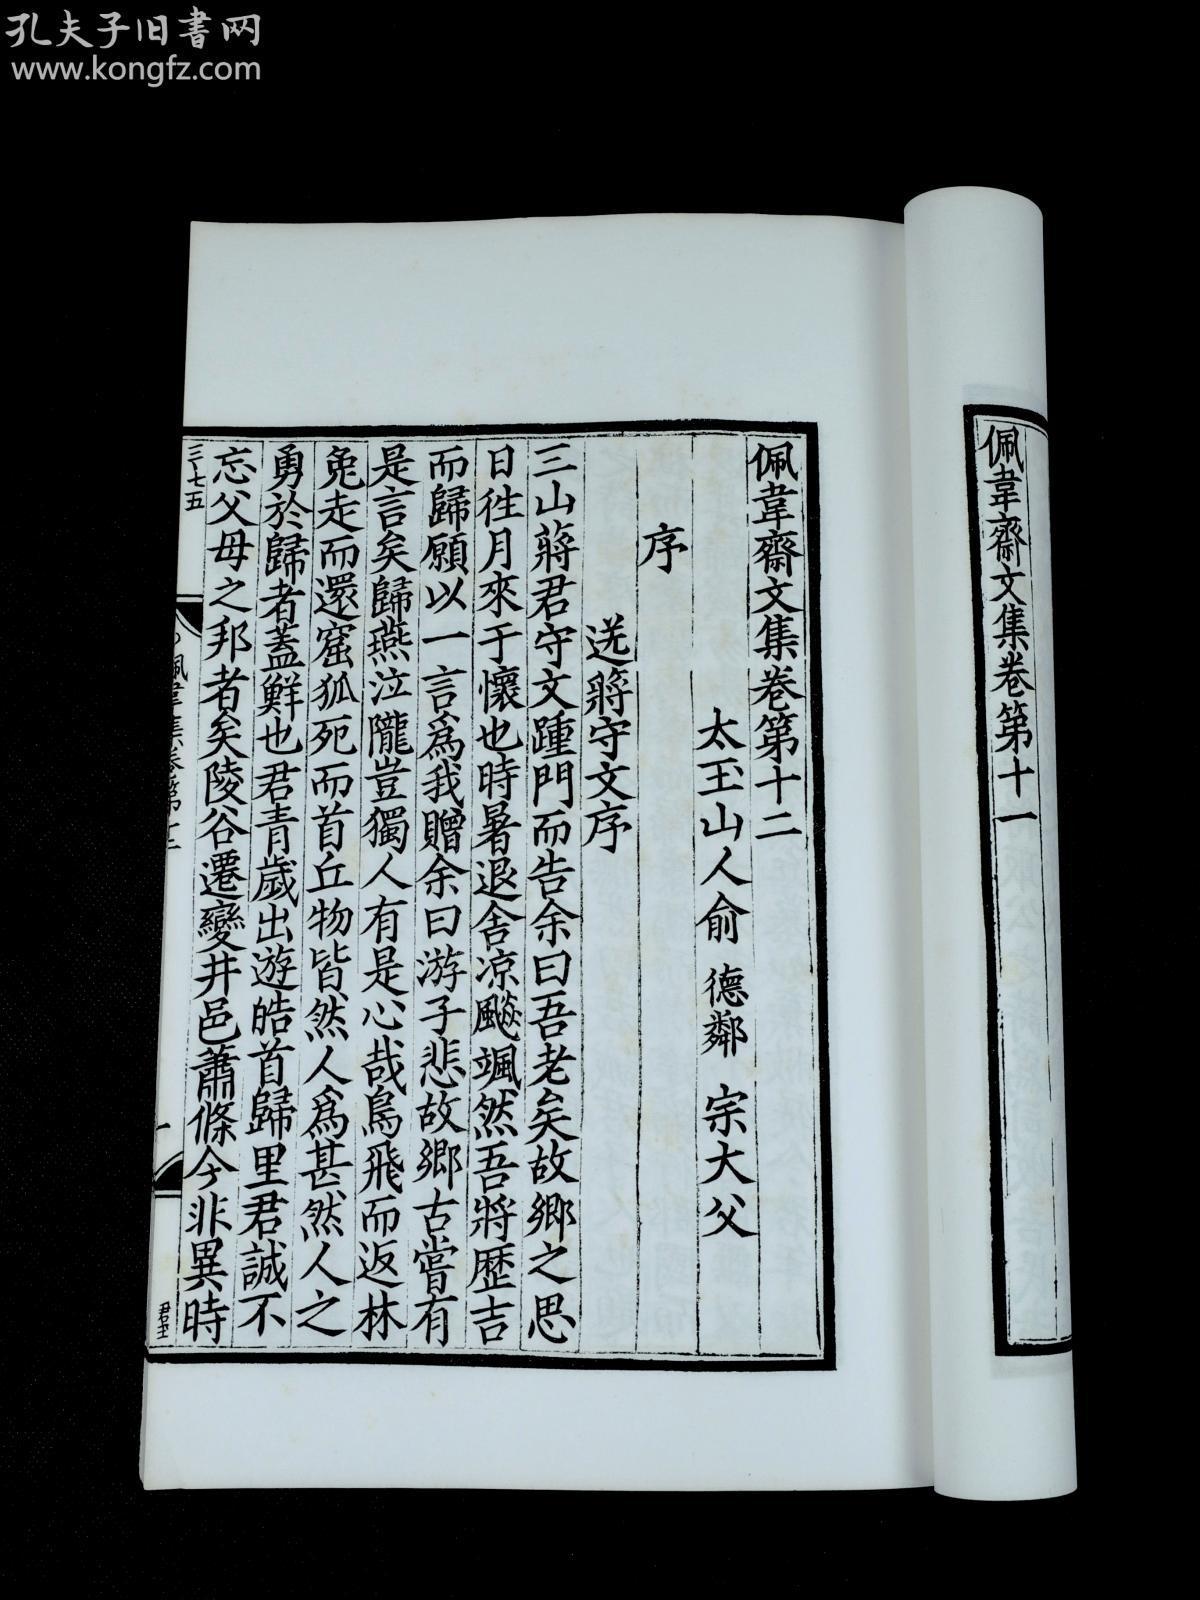 孔夫子旧书网
www.kongfz.com
佩韋齋文集卷第十一
佩韋齋文集卷第十二
太玉山人俞 德鄰 宗大父
序
送蔣守文序
三山蔣君守文踵門而告余曰吾老矣故鄉之思
日徃月來于懷也時暑退舍凉飇颯然吾將歷吉
而歸願以一言爲我贈余曰游子悲故鄉古嘗有
是言矣歸燕泣隴豈獨人有是心哉鳥飛而返林
兔走而還窟狐死而首丘物皆然人爲甚然人之
勇於歸者蓋鮮也君青歲出遊皓首歸里君誠不
忘父母之邦者矣陵谷遷變井邑蕭條今非異時
三七五
佩韋集卷第十二
一
君玉